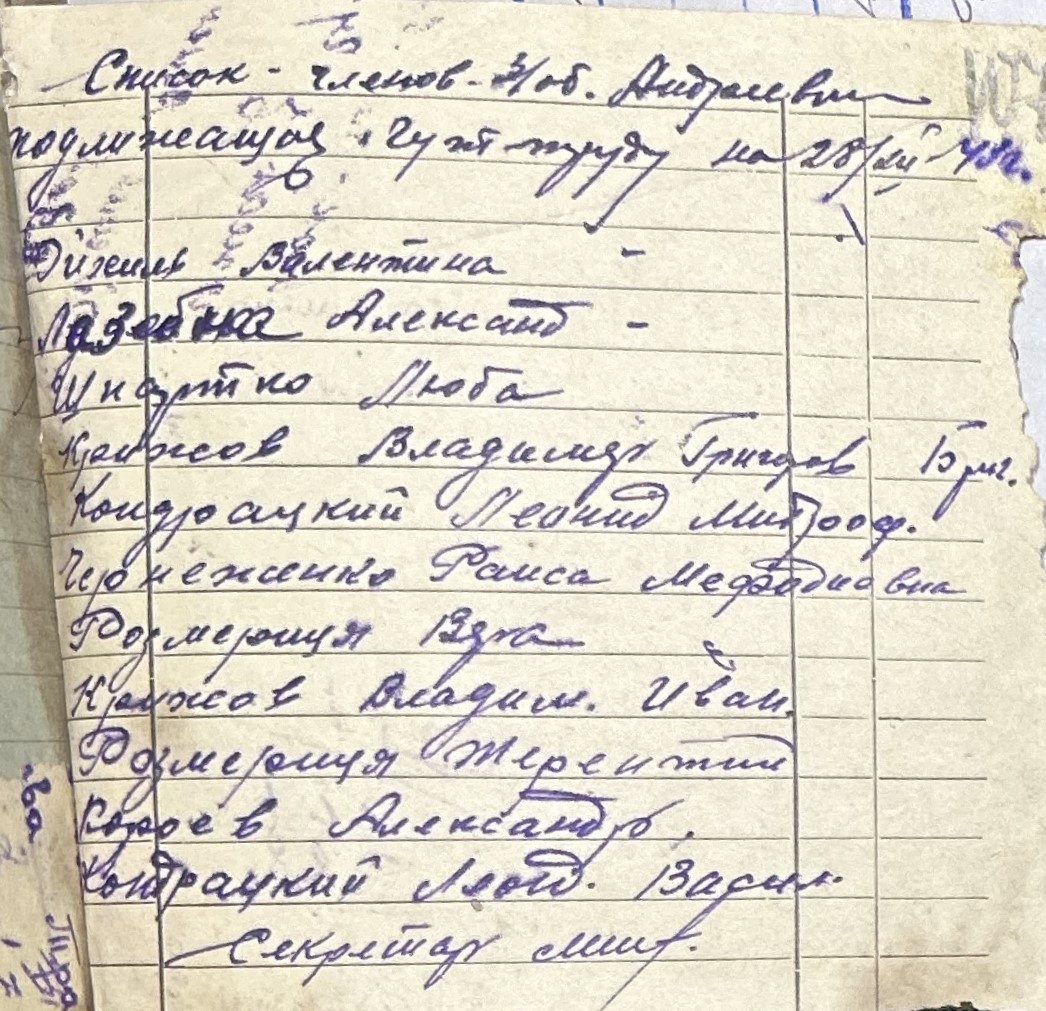 Список - членов - З/об. Андреевки
подлижащоя Гужт труду на 28/XII
Валентина -
Лазебна Александ -
Люба
Крижов Владимер Григоров Бриг.
Кондрацкий Леонид Митрооф.
Чернеженко Раиса Мефодиовна
Розмериця Вера
Крижов Владим. Иван.
Розмериця Терентий
Короев Александр.
Контрацкий Леонд. Васил.
Секретар